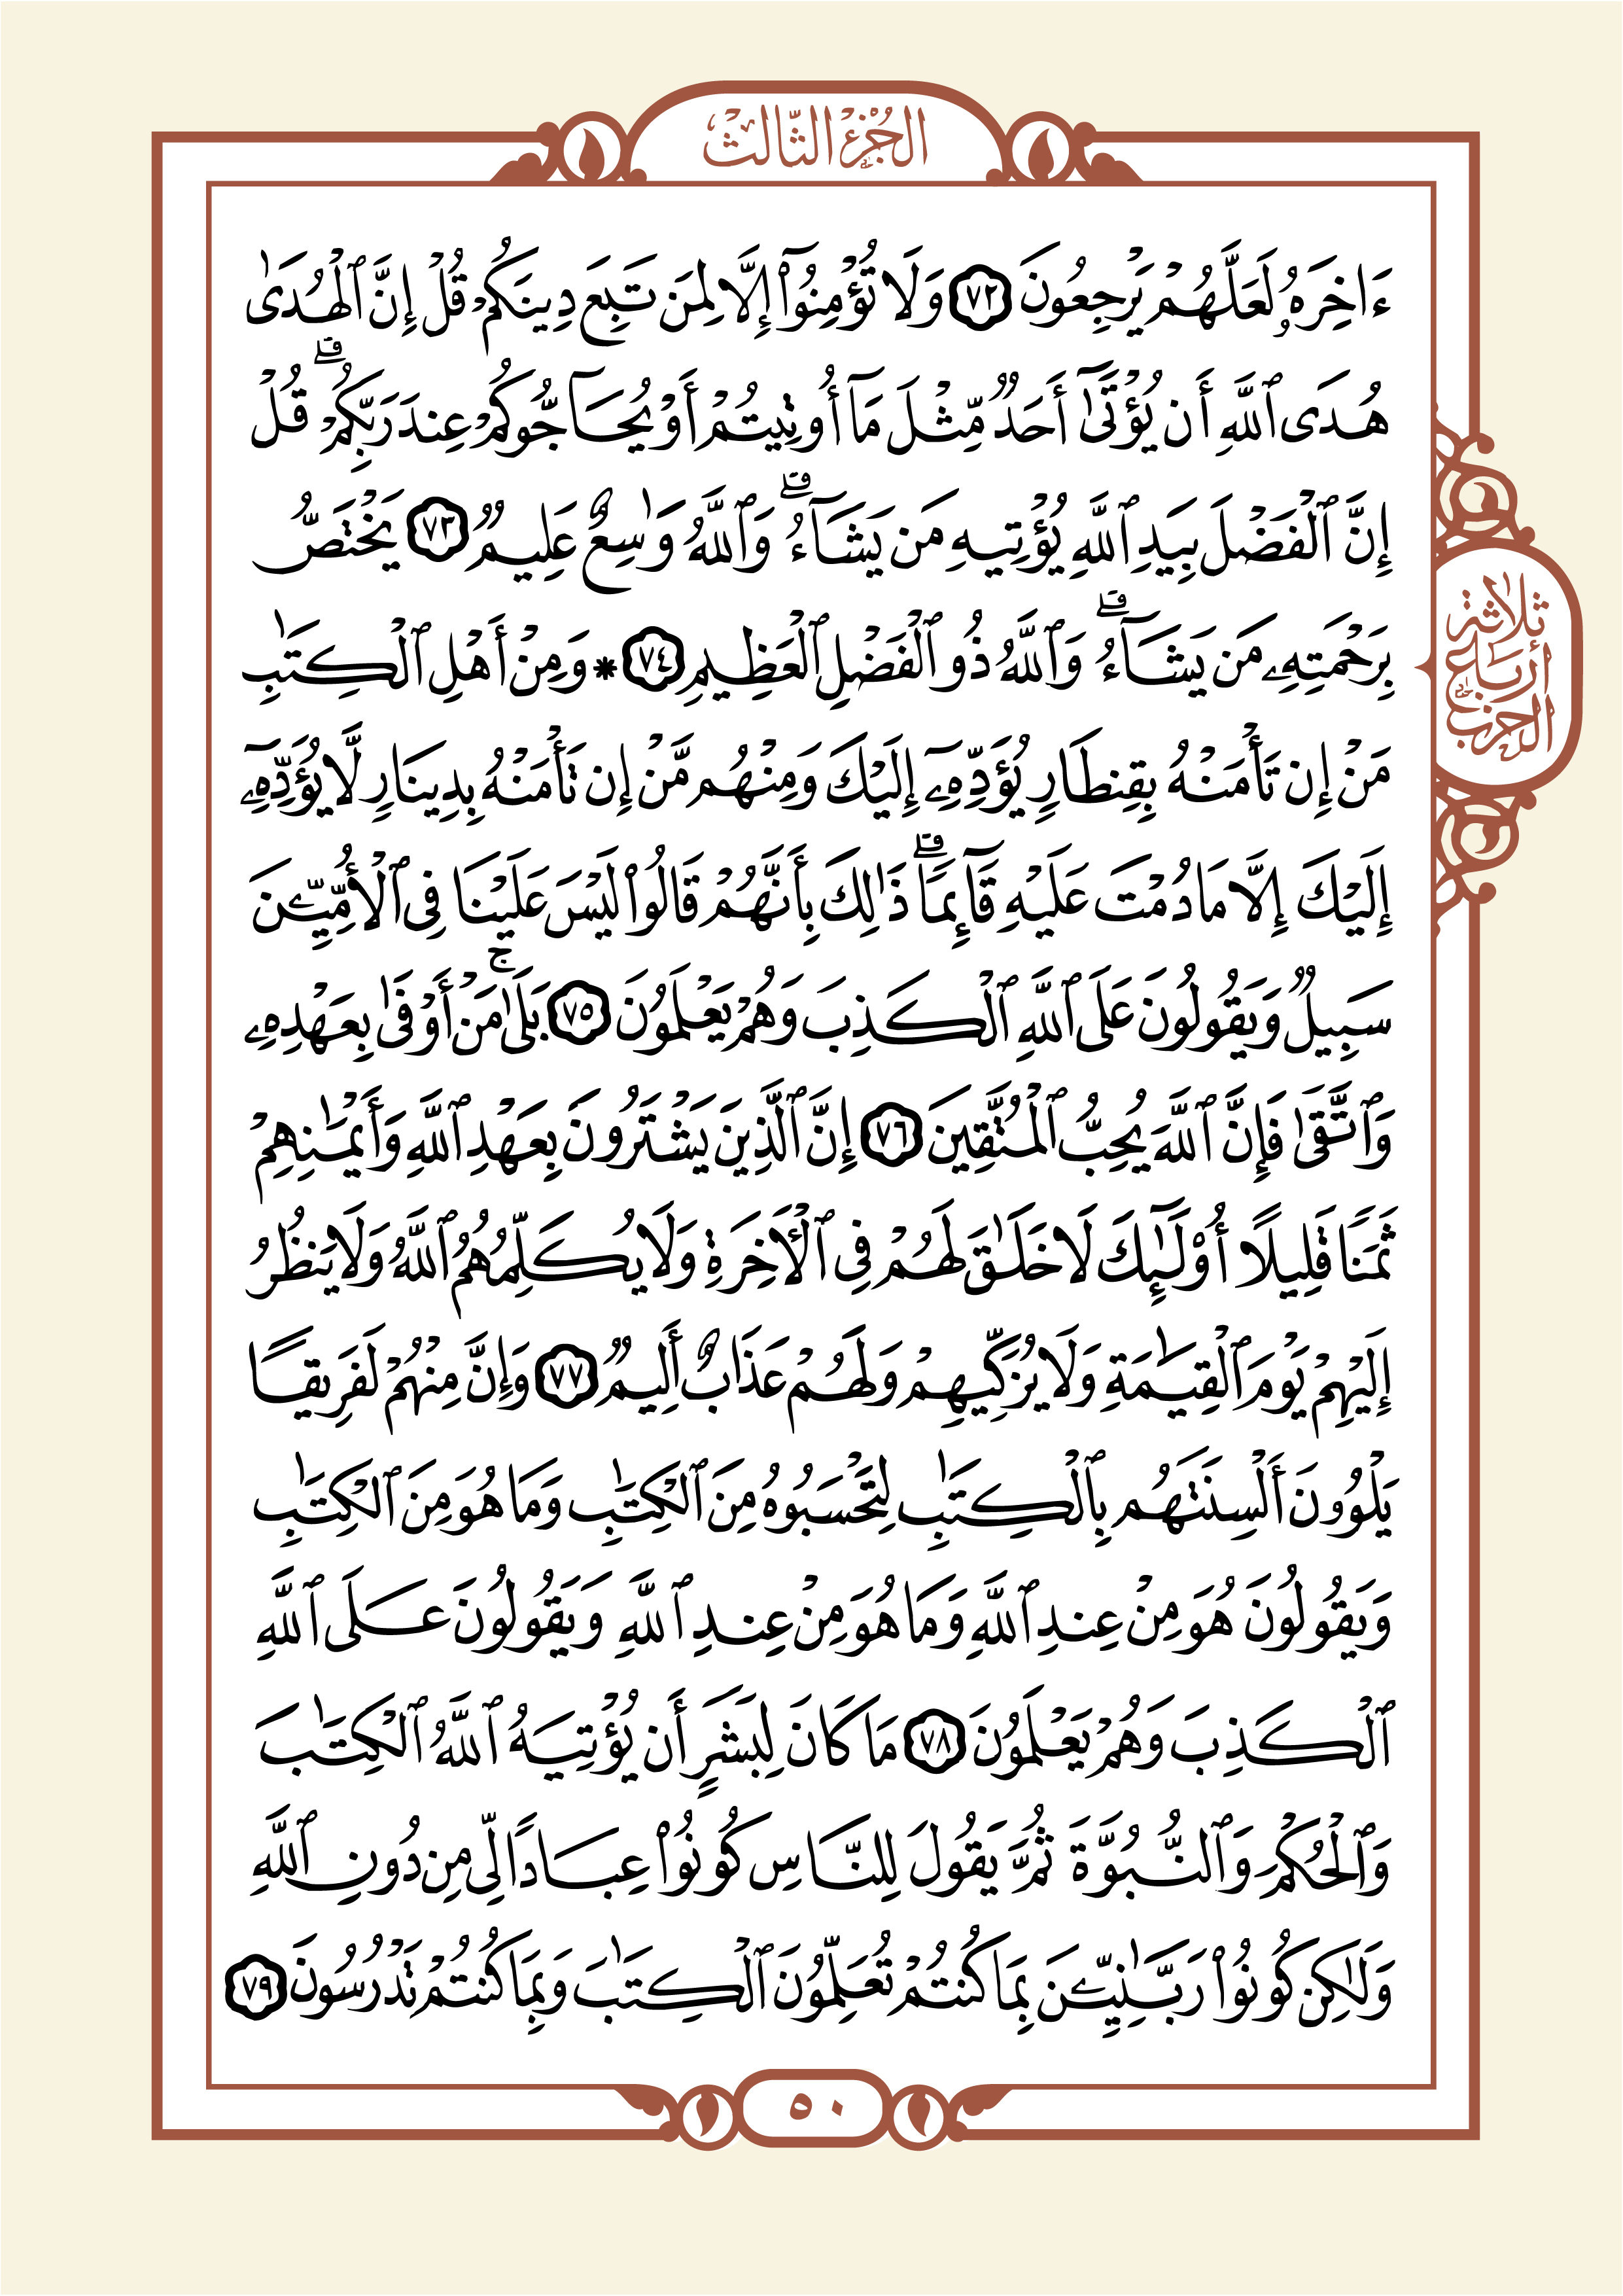 الجُزْءُ الثَّالِثُ
ءَاخِرَهُۥ لَعَلَّهُمْ يَرْجِعُونَ ٧٢ وَلَا تُؤْمِنُوٓا۟ إِلَّا لِمَن تَبِعَ دِينَكُمْ قُلْ إِنَّ ٱلْهُدَىٰ
هُدَى ٱللَّهِ أَن يُؤْتَىٰٓ أَحَدٌ مِّثْلَ مَآ أُوتِيتُمْ أَوْ يُحَآجُّوكُمْ عِندَ رَبِّكُمْ ۗ قُلْ
إِنَّ ٱلْفَضْلَ بِيَدِ ٱللَّهِ يُؤْتِيهِ مَن يَشَآءُ ۗ وَٱللَّهُ وَٰسِعٌ عَلِيمٌ ٧٣ يَخْتَصُّ
بِرَحْمَتِهِۦ مَن يَشَآءُ ۗ وَٱللَّهُ ذُو ٱلْفَضْلِ ٱلْعَظِيمِ ٧٤ * وَمِنْ أَهْلِ ٱلْكِتَٰبِ
مَنْ إِن تَأْمَنْهُ بِقِنطَارٍ يُؤَدِّهِۦٓ إِلَيْكَ وَمِنْهُم مَّنْ إِن تَأْمَنْهُ بِدِينَارٍ لَّا يُؤَدِّهِۦٓ
إِلَيْكَ إِلَّا مَا دُمْتَ عَلَيْهِ قَآئِمًا ۗ ذَٰلِكَ بِأَنَّهُمْ قَالُوا۟ لَيْسَ عَلَيْنَا فِى ٱلْأُمِّيِّۦنَ
سَبِيلٌ وَيَقُولُونَ عَلَى ٱللَّهِ ٱلْكَذِبَ وَهُمْ يَعْلَمُونَ ٧٥ بَلَىٰ ۚ مَنْ أَوْفَىٰ بِعَهْدِهِۦ
وَٱتَّقَىٰ فَإِنَّ ٱللَّهَ يُحِبُّ ٱلْمُتَّقِينَ ٧٦ إِنَّ ٱلَّذِينَ يَشْتَرُونَ بِعَهْدِ ٱللَّهِ وَأَيْمَٰنِهِمْ
ثَمَنًا قَلِيلًا أُو۟لَٰٓئِكَ لَا خَلَٰقَ لَهُمْ فِى ٱلْءَاخِرَةِ وَلَا يُكَلِّمُهُمُ ٱللَّهُ وَلَا يَنظُرُ
إِلَيْهِمْ يَوْمَ ٱلْقِيَٰمَةِ وَلَا يُزَكِّيهِمْ وَلَهُمْ عَذَابٌ أَلِيمٌ ٧٧ وَإِنَّ مِنْهُمْ لَفَرِيقًا
يَلْوُۥنَ أَلْسِنَتَهُم بِٱلْكِتَٰبِ لِتَحْسَبُوهُ مِنَ ٱلْكِتَٰبِ وَمَا هُوَ مِنَ ٱلْكِتَٰبِ
وَيَقُولُونَ هُوَ مِنْ عِندِ ٱللَّهِ وَمَا هُوَ مِنْ عِندِ ٱللَّهِ وَيَقُولُونَ عَلَى ٱللَّهِ
ٱلْكَذِبَ وَهُمْ يَعْلَمُونَ ٧٨ مَا كَانَ لِبَشَرٍ أَن يُؤْتِيَهُ ٱللَّهُ ٱلْكِتَٰبَ
وَٱلْحُكْمَ وَٱلنُّبُوَّةَ ثُمَّ يَقُولَ لِلنَّاسِ كُونُوا۟ عِبَادًا لِّى مِن دُونِ ٱللَّهِ
وَلَٰكِن كُونُوا۟ رَبَّٰنِيِّۦنَ بِمَا كُنتُمْ تُعَلِّمُونَ ٱلْكِتَٰبَ وَبِمَا كُنتُمْ تَدْرُسُونَ ٧٩
ثلاثة
أرباع
الحزب
٥٠